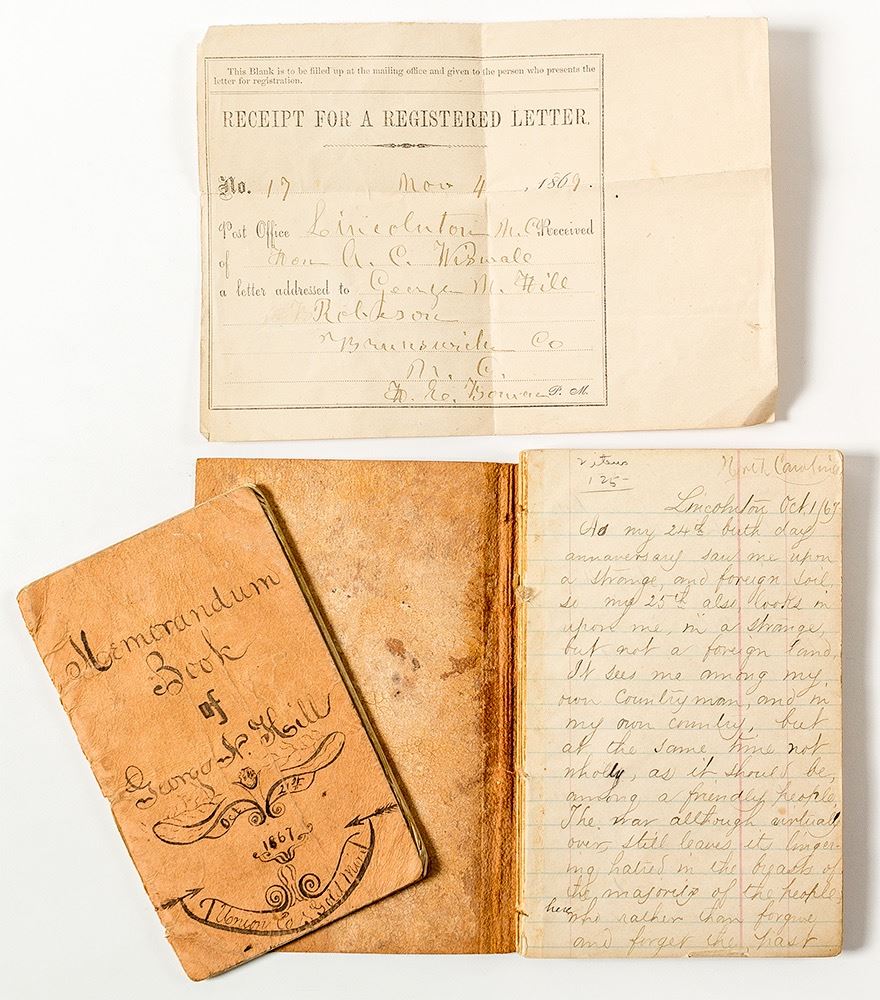 This Blank is to be filled up at the mailing office and given to the person who presents the
letter for registration.
RECEIPT FOR A REGISTERED LETTER.
No. 17 Nov 4, 1869.
Post Office Lincolnton N.C. Received
of Hon A. C. Wiswall
a letter addressed to George N. Hill
Robeson
Brunswick Co
N. C.
P. M.
Memorandum
Book
of
George N. Hill
Oct 21st
1867
Union Co Gold Mine
125
North Carolina
Lincolnton Oct 1/67
As my 24th birth day
annaversary saw me upon
a strange, and foreign soil,
so my 25th also looks in
upon me, in a strange,
but not a foreign land.
It sees me among my
own Countryman, and in
my own country, but
at the same time not
wholly, as it should be,
among a friendly people.
The war although virtually
over still leaves its linger-
ing hatred in the breasts of
the majority of the people
here who rather than forgive
and forget the past